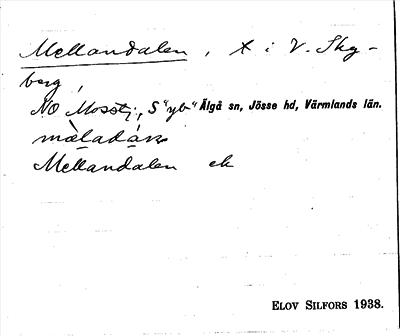 Mellandalen, × i V. Skog-
berg,
NO Mosstj., S "yb" Älgå sn, Jösse hd, Värmlands län.
Mellandalen ek
ELOV SILFORS 1938.